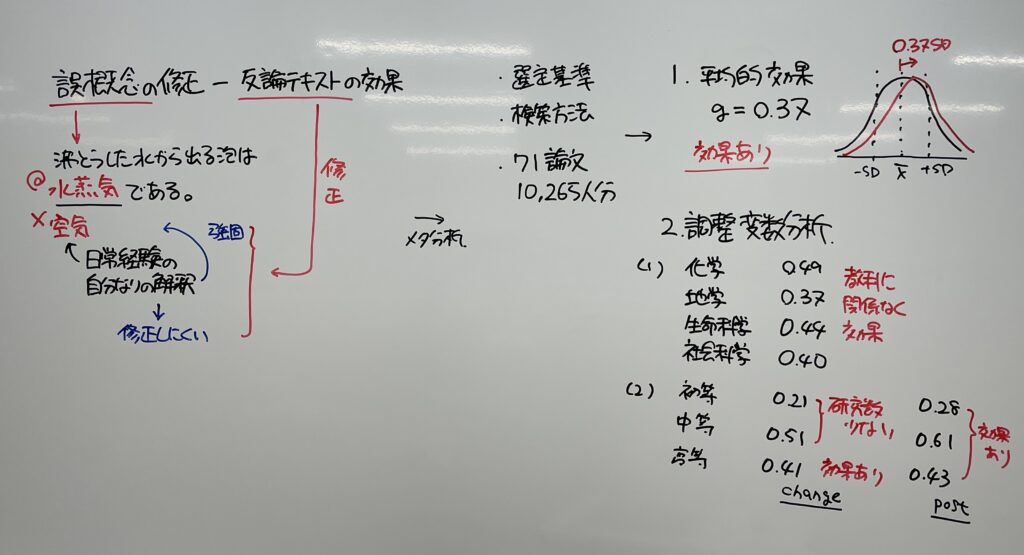 誤概念の修正 ― 反論テキストの効果
沸とうした水から出る泡は
◎ 水蒸気 である。
× 空気
日常経験の
自分なりの解釈
強固
修正しにくい
修正
→
メタ分析
・選定基準
・検索方法
・71論文
10,265人分
→
1. 平均的効果
g = 0.37
効果あり
0.37SD
-SD X̄ +SD
2. 調整変数分析
(1) 化学 0.49
地学 0.37
生命科学 0.44
社会科学 0.40
教科に
関係なく
効果
(2) 初等 0.21 0.28
中等 0.51 0.61
高等 0.41 効果あり 0.43
研究数
少ない
効果
あり
change post